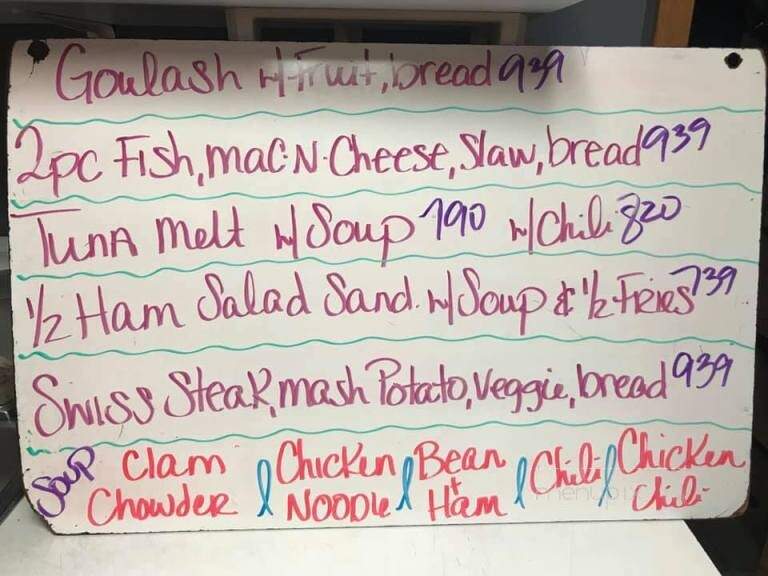 Goulash w/Fruit, bread 939
2pc Fish, mac·N·Cheese, Slaw, bread 939
Tuna melt w/Soup 790 w/Chili 820
1/2 Ham Salad Sand. w/Soup & 1/2 Fries 739
Swiss Steak, mash Potato, Veggie, bread 939
Soup Clam Chowder / Chicken NOODLE / Bean + Ham / Chili / Chicken Chili